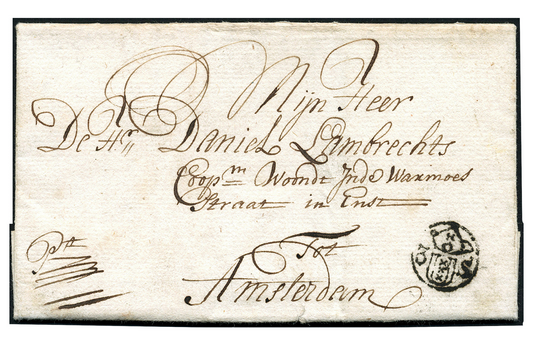 Mijn Heer
De Hr Daniel Lambrechts
Coopm Woondt Inde Warmoes
Straat in Enst
Tot
Pt
Amsterdam